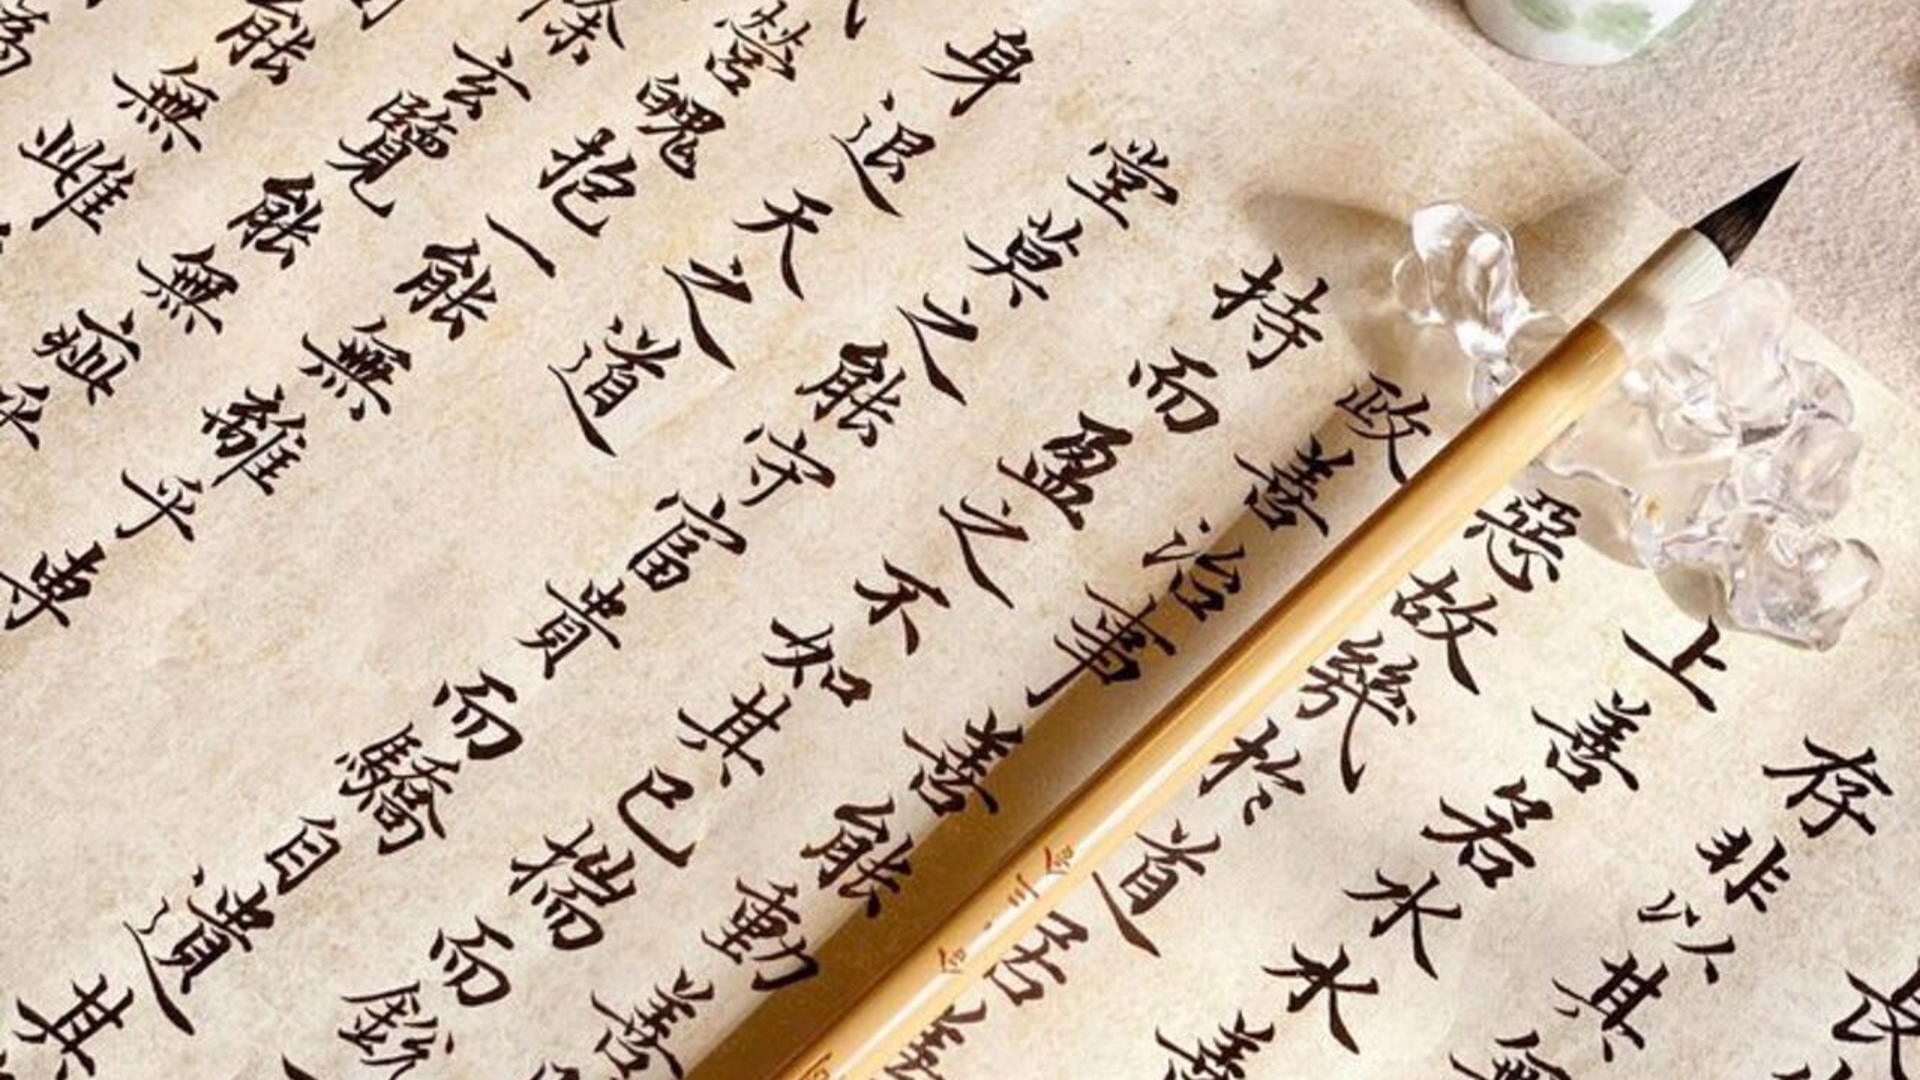 長
存非以其無
上善若水水善
惡故幾於道居善
政善治事善能動善
持而盈之不如其已揣而銳
堂莫之能守富貴而驕自遺其
身退天之道
營魄抱一能無離乎專
除玄覽能無疵乎
能無雌